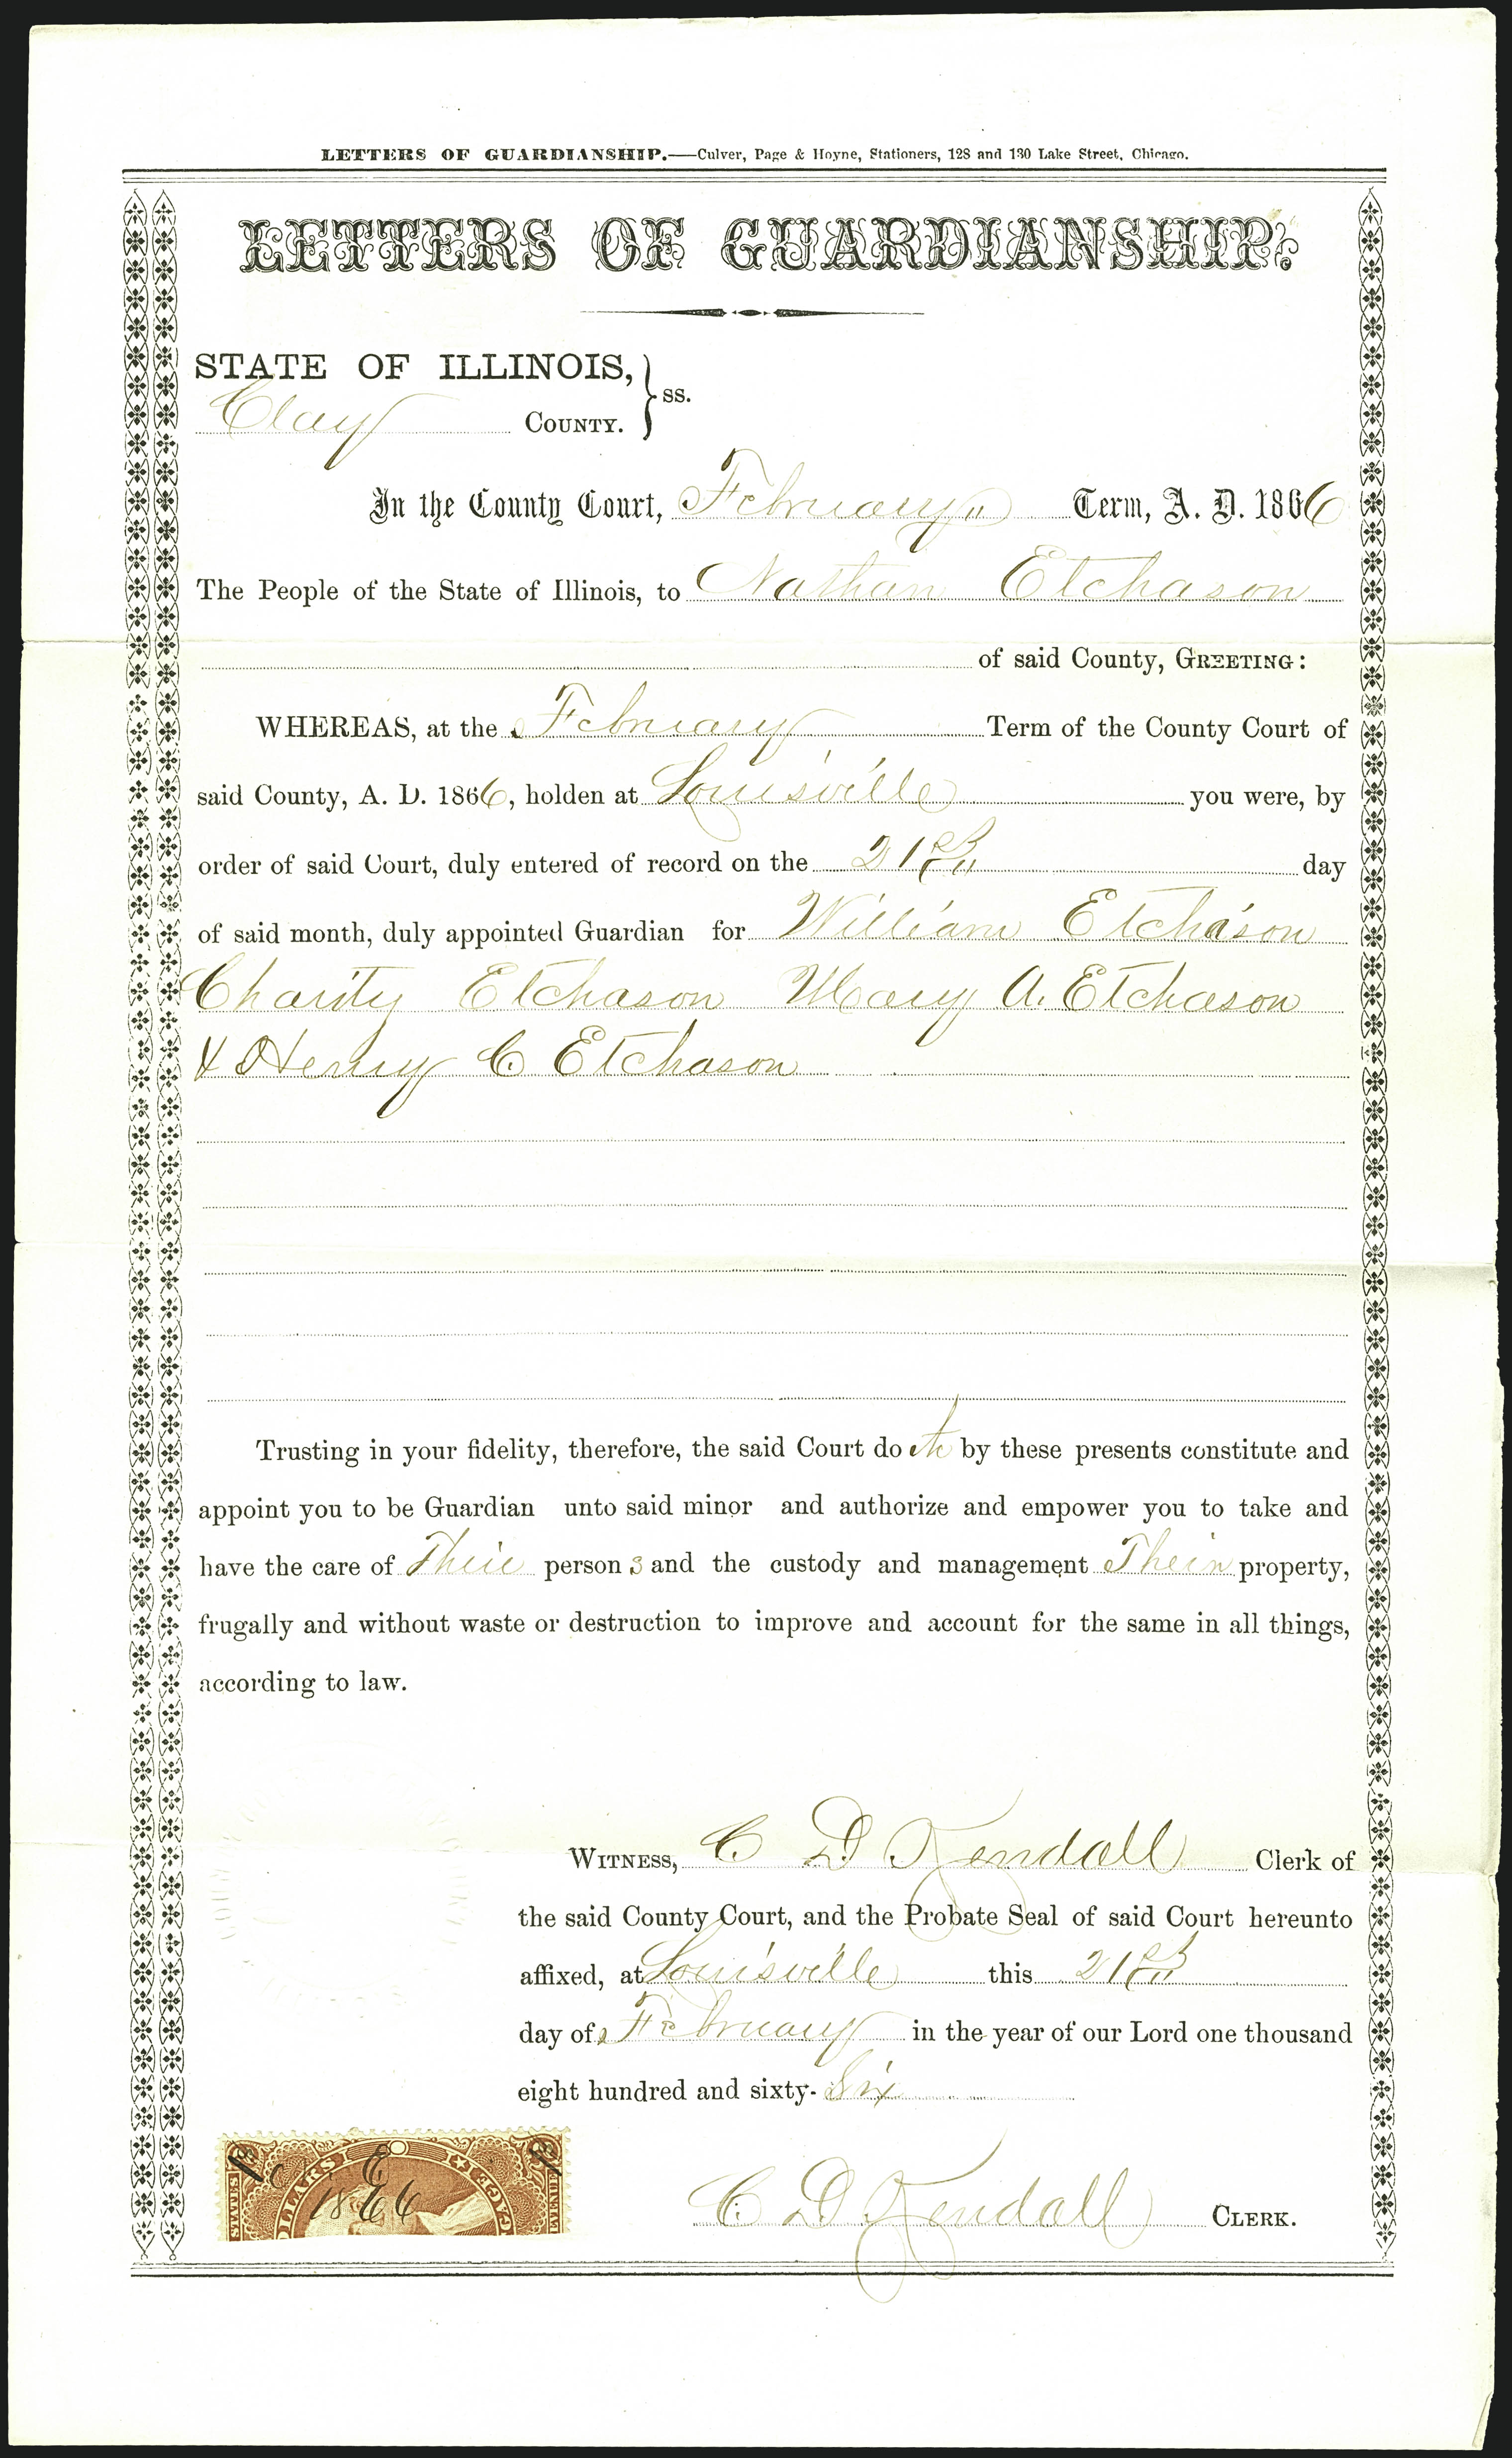 LETTERS OF GUARDIANSHIP.—Culver, Page & Hoyne, Stationers, 128 and 130 Lake Street, Chicago.
LETTERS OF GUARDIANSHIP.
STATE OF ILLINOIS,
Clay COUNTY. } ss.
In the County Court, February Term, A. D. 1866
The People of the State of Illinois, to Nathan Etchason
of said County, GREETING:
WHEREAS, at the February Term of the County Court of
said County, A. D. 1866, holden at Louisville you were, by
order of said Court, duly entered of record on the 21st day
of said month, duly appointed Guardian for William Etchason
Charity Etchason Mary A. Etchason
& Henry C Etchason
Trusting in your fidelity, therefore, the said Court do eth by these presents constitute and
appoint you to be Guardian unto said minor and authorize and empower you to take and
have the care of Their persons and the custody and management Their property,
frugally and without waste or destruction to improve and account for the same in all things,
according to law.
WITNESS, C D Kendall Clerk of
the said County Court, and the Probate Seal of said Court hereunto
affixed, at Louisville this 21st
day of February in the year of our Lord one thousand
eight hundred and sixty-Six
C D Kendall CLERK.
STATES DOLLARS
1866